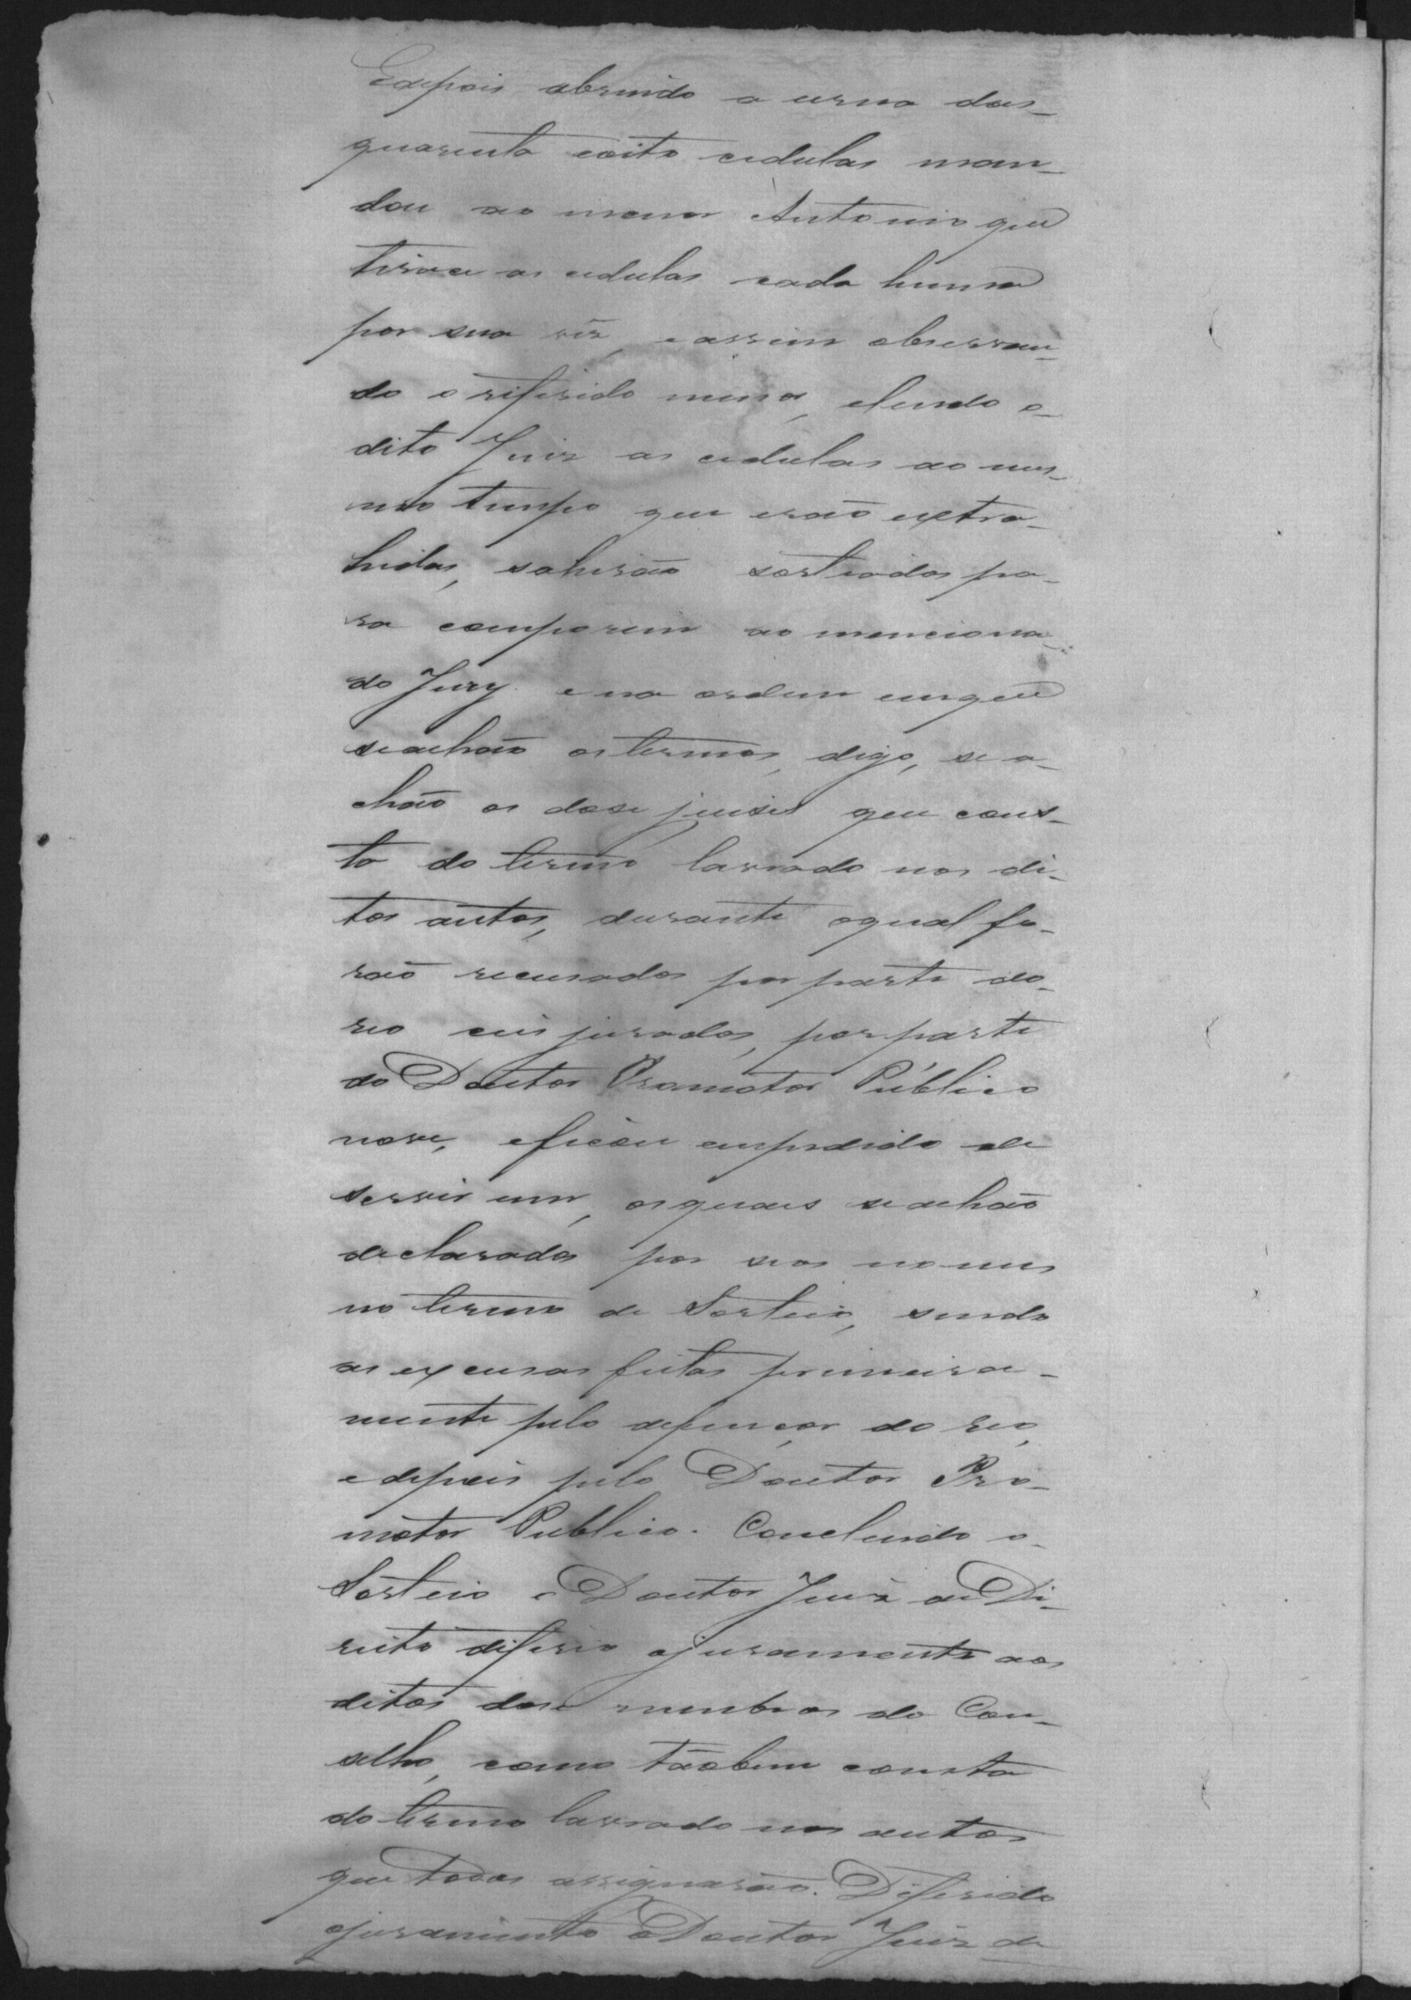 Edepois abrindo a urna das
quarenta eoito cedulas man-
dou ao menor Antonio que
tirace as cedulas cada huma
por sua vêz, eassim observan-
do o riferido menor, elendo o
dito Juiz as cedulas ao mes-
mo tempo que erão extra-
hidas, sahirão sorteados pa-
ra comporem ao menciona-
do Jury e na ordem emque
seachão os termos, digo, se a-
chão os dose juises que cons-
ta do termo lavrado nos di-
tos autos, durante oqual fo-
rão recusados por parte do
reo seis jurados, porparte
do Doutor Promotor Público
nove, eficou empedido de
servir um, osquaes seachão
declarados por seos nomes
no termo de Sorteio, sendo
as excusas feitas primeira-
mente pelo defençor do reo,
edepois pelo Doutor Pro-
motor Publico. Concluido o
Sorteio o Doutor Juiz de Di-
reito diferio ojuramento aos
ditos dose membros do Con-
selho, como tãobem consta
do termo lavrado nos autos
que todos assignarão. Diferido
ojuramento o Doutor Juiz de